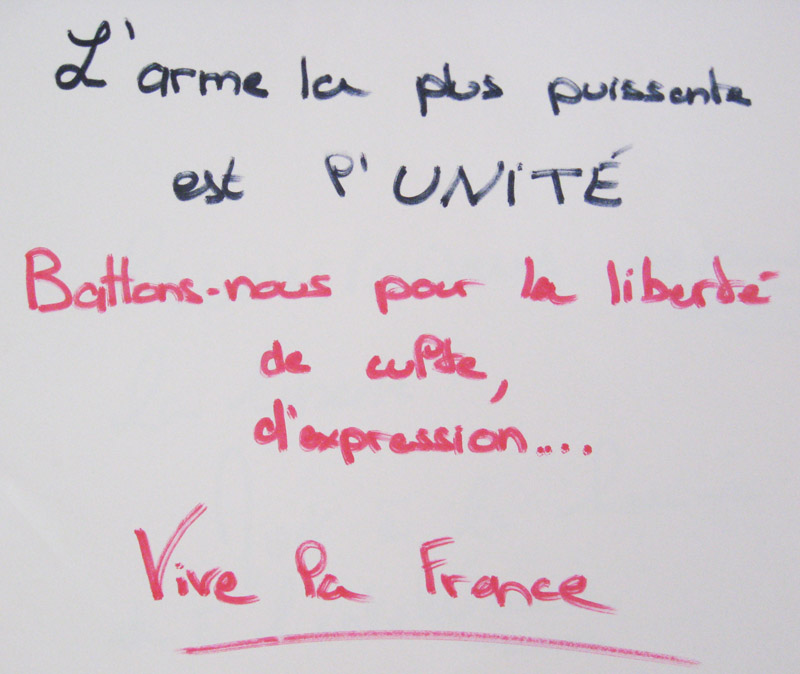 L'arme la plus puissante
est l'UNiTÉ
Battons-nous pour la liberté
de culte,
d'expression....
Vive la France